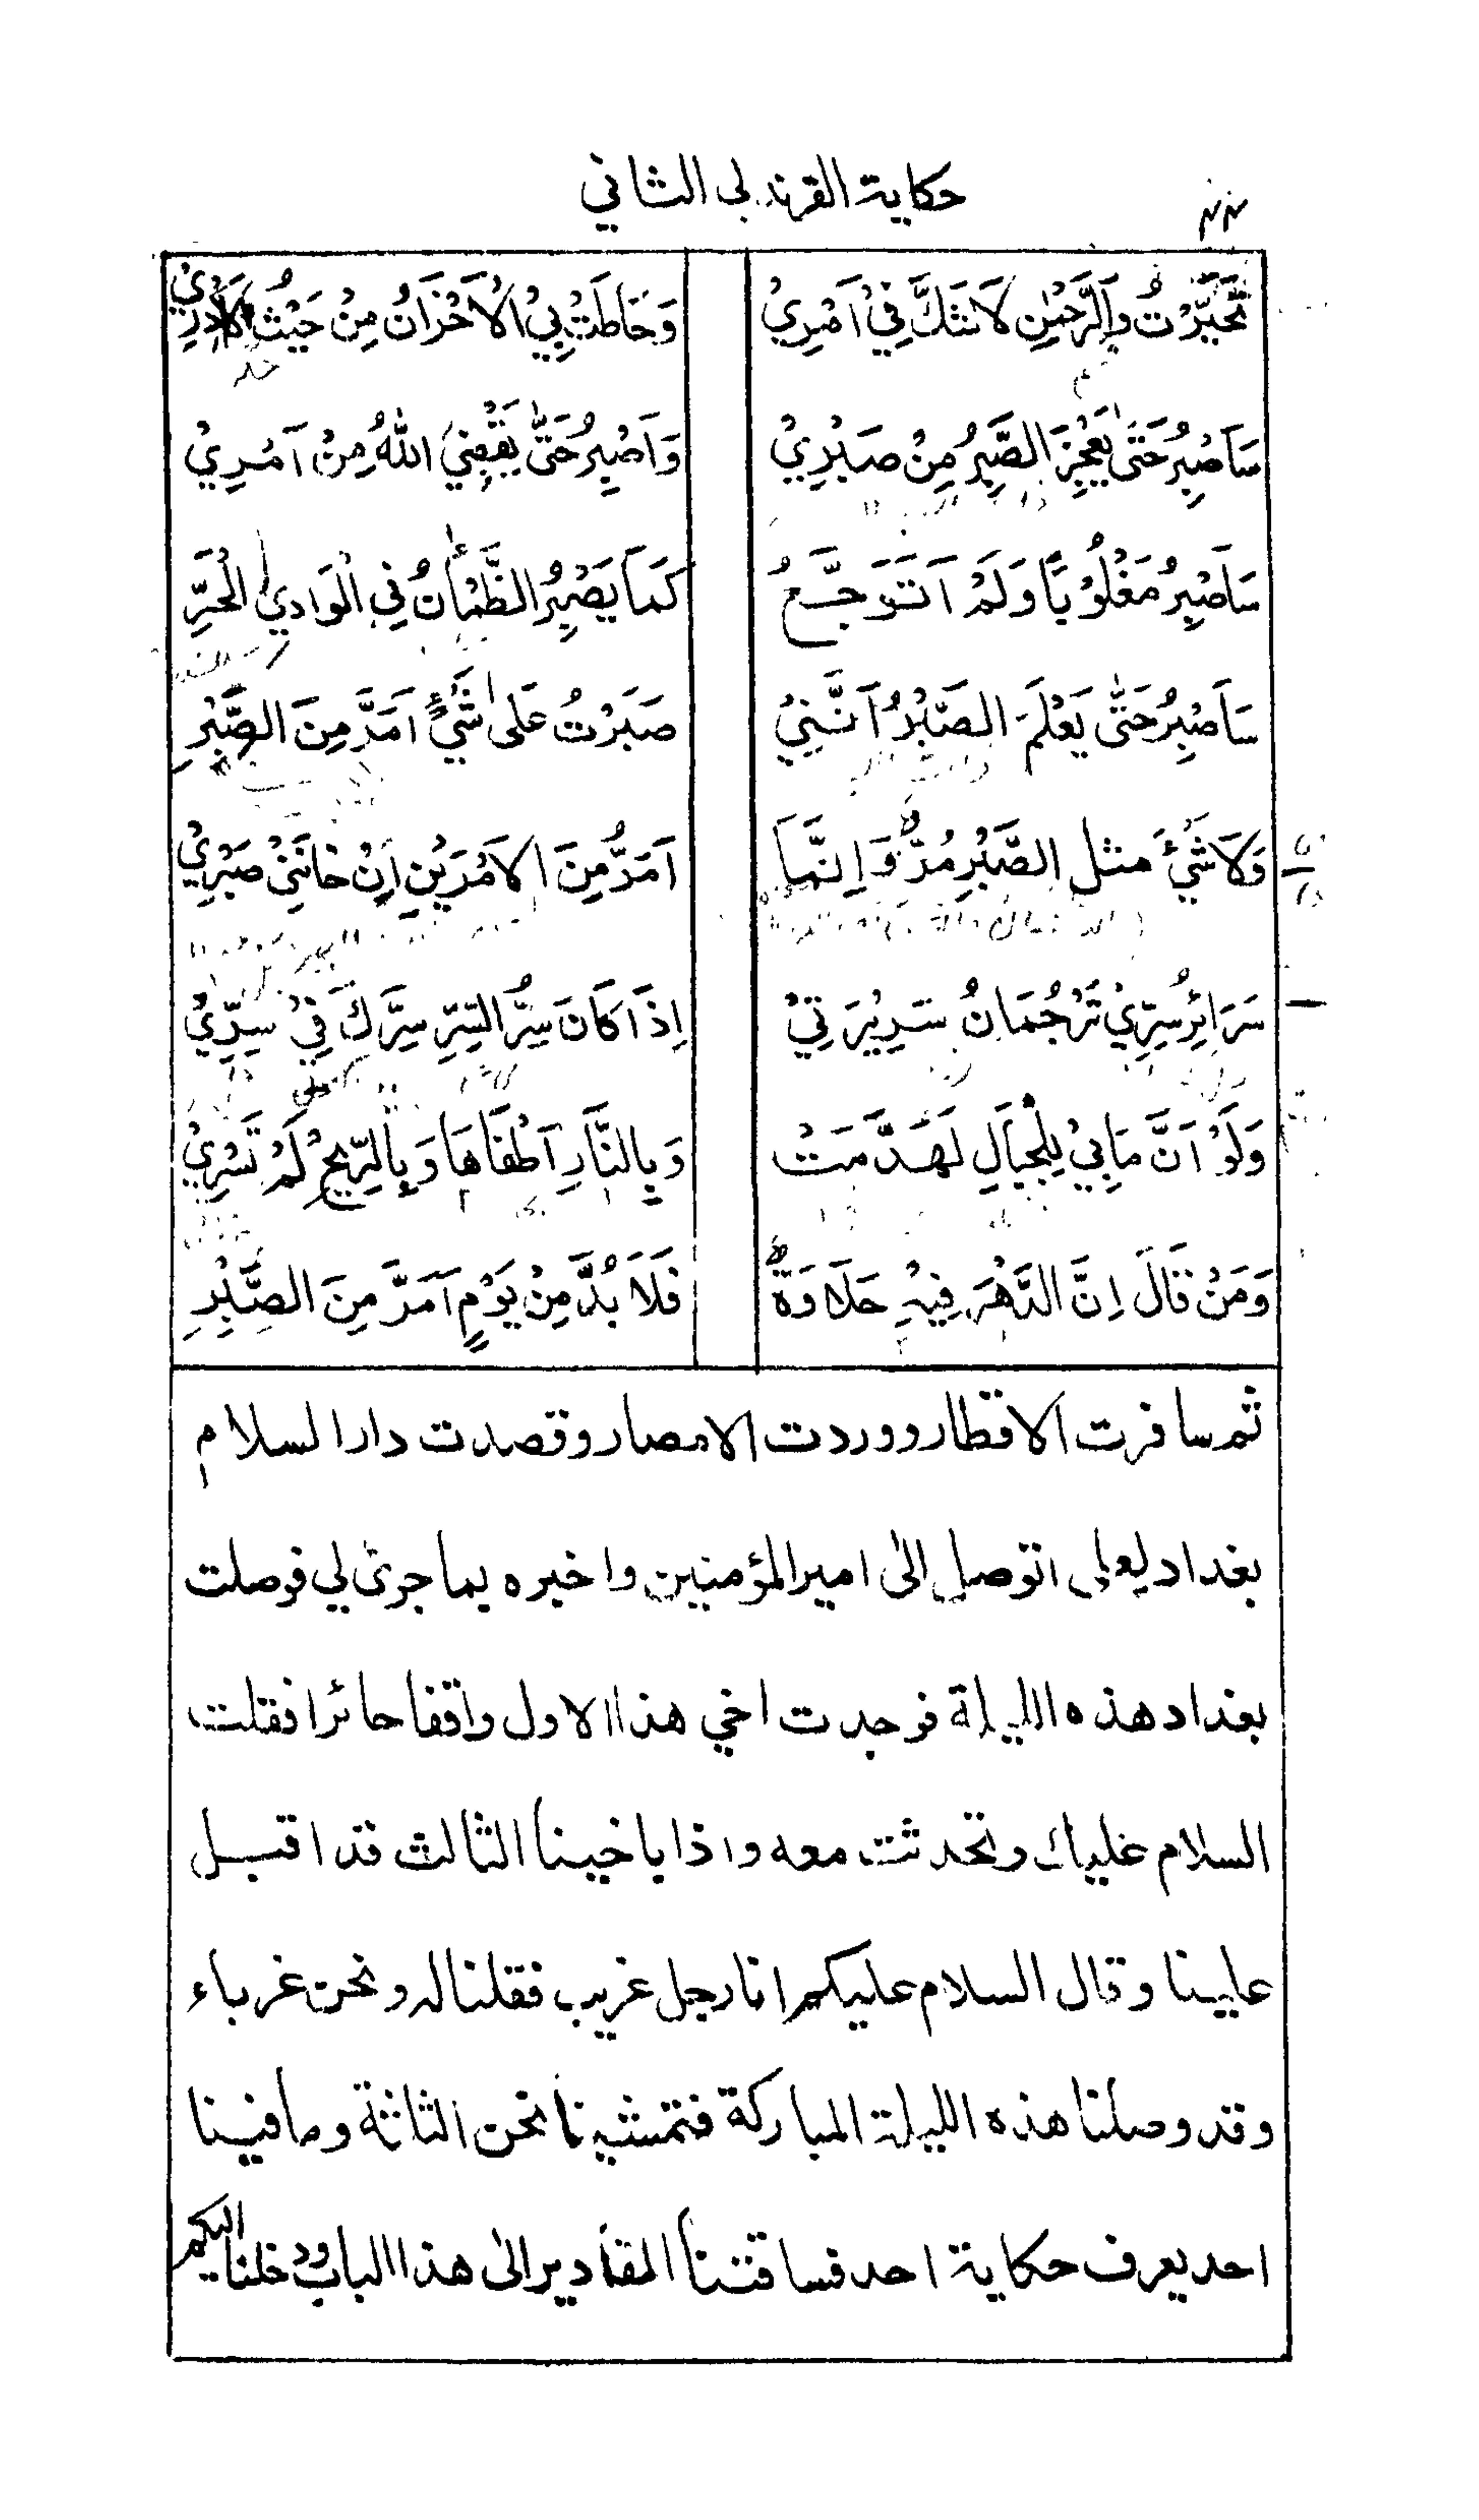 حكاية القرندلى الثاني
تَحَيَّرْتُ وَالرَّحْمٰنِ لَاشَكَّ فِيْ اَمْرِيْ وَحَاطَتْ بِيْ الْاَحْزَانُ مِنْ حَيْثُ لَااَدْرِيْ
سَاَصْبِرُ حَتّٰى يَعْجِزَ الصَّبْرُ مِنْ صَبْرِيْ وَاَصْبِرُ حَتّٰى يَقْضِيَ اللّٰهُ مِنْ اَمْرِيْ
سَاَصْبِرُ مَغْلُوْبًا وَلَمْ اَتَوَجَّعُ كَمَا يَصْبِرُ الظَّمْاٰنُ فِي الْوَادِي الْحَرِّ
سَاَصْبِرُ حَتّٰى يَعْلَمَ الصَّبْرُ اَنَّنِيْ صَبَرْتُ عَلٰى شَيْءٍ اَمَرَّ مِنَ الصَّبْرِ
وَلَا شَيْءَ مثل الصَّبْرِ مُرٌّ وَاِنَّمَا اَمَرُّ مِنَ الاَمْرَيْنِ اِنْ خَانَنِيْ صَبْرِيْ
سَرَائِرُ سِرِّيْ تَرْجُمَانُ سَرِيْرَتِيْ اِذَا كَانَ سِرُّ السِّرِّ سِرَّكَ فِيْ سِرِّيْ
وَلَوْ اَنَّ مَا بِيْ بِالْجِبَالِ لَهَدَّمَتْ وَبِالنَّارِ اَطْفَاهَا وَبِالرِّيْحِ لَمْ تَسْرِيْ
وَمَنْ قَالَ اِنَّ الدَّهْرَ فِيْهِ حَلَاوَةٌ فَلَا بُدَّ مِنْ يَوْمٍ اَمَرَّ مِنَ الصَّبْرِ
ثم سافرت الاقطار ووردت الامصار وقصدت دار السلام
بغداد لعلى اتوصل الىٰ امير المؤمنين واخبره بما جرىٰ لي فوصلت
بغداد هذه الليلة فوجدت اخي هذا الاول واقفا حائرا فقلت
السلام عليك وتحدثت معه واذا باخينا الثالث قد اقبل
علينا وقال السلام عليكم انا رجل غريب فقلنا له ونحن غرباء
وقد وصلنا هذه الليلة المباركة فتمشينا نحن الثلثة وما فينا
احد يعرف حكاية احد فساقتنا المقادير الىٰ هذا الباب ودخلنا اليكم